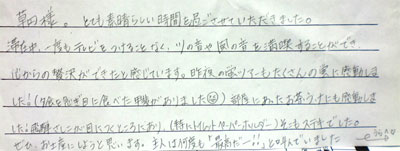 草田様。とても素晴らしい時間を過ごさせていただきました。
滞在中、一度もテレビをつけることなく、川の音や風の音を満喫することができ、
心からの贅沢ができたと感じています。昨夜の ツアーもたくさんの星に感動しま
した!(夕食を 食べた甲斐がありました)部屋にあったお茶うけにも感動しま
した!飛騨さしこが目につくところにあり、(特にトイレットペーパーホルダー)とてもステキでした。
ぜひ、お土産にしようと思います。主人は何度も「最高だー!!」と叫んでいました